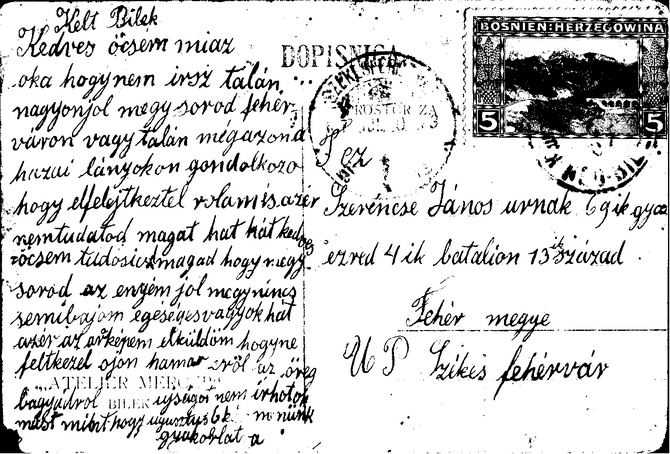 Kelt Bilek
Kedves öcsém miaz
oka hogynem irsz talán
nagyonjol megy sorod fehér
váron vagytalán mégazona
hazai lányokon gondolkozo
hogy elfelejtkeztel rolamis.azér
nemtudatod magat hat hát kedves
öcsém tudosics magad hogy megy
sorod az enyém jol megynincs
semibajom egeségesvagyok hát
azér az arképem elküldöm hogyne
feltkezel ojan hamar ról az öreg
bagyadrol ujságot nem irhatok
mast mint hogy ugusztus 6k menünk
gyakorlat a
ATELIER
BILEK
DOPISNICA
BOSNIEN:HERZEGOWINA
5 5
Szerencse János urnak 69 ik gyaz
ezred 4 ik batalion 13 ik század
Fehér megye
U P Szikés fehérvár